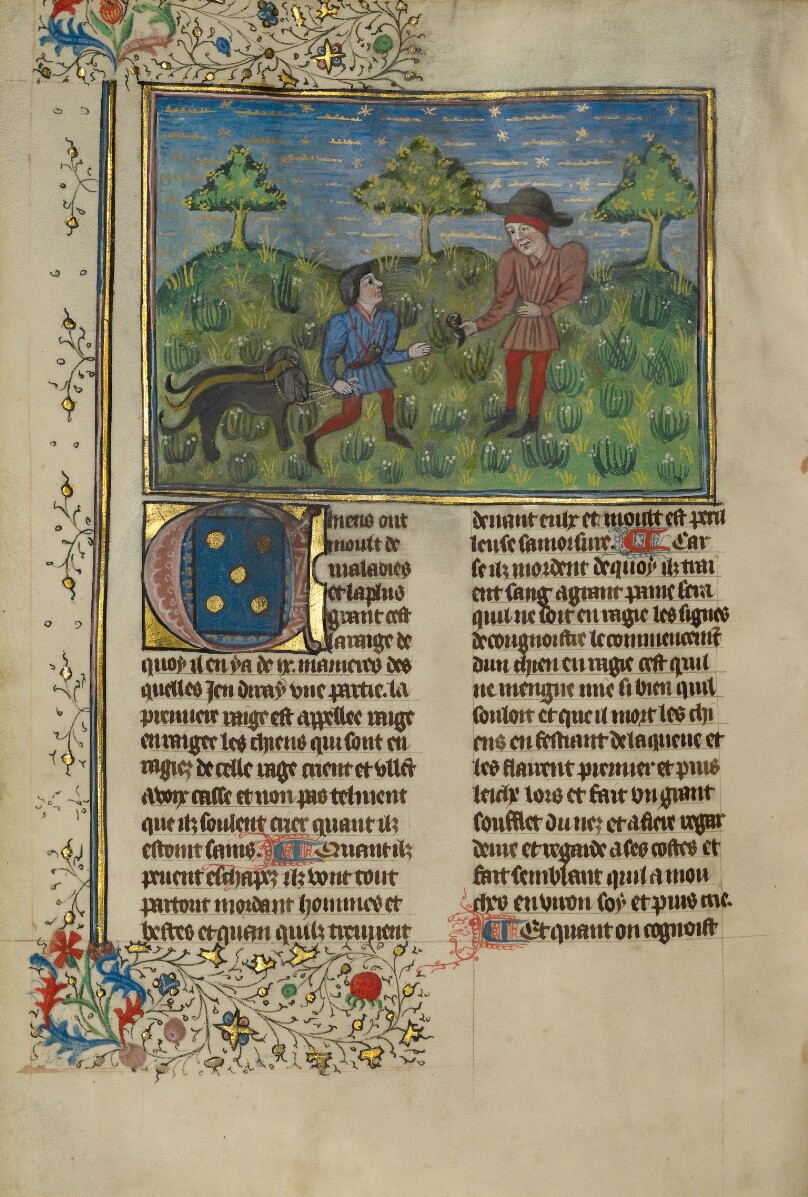 Chiens ont
moult de
maladies
et la plus
grant cest
la raige de
quoy il en ya de ix. manieres des
quelles Jen diray vne partie. la
premiere raige est appellee raige
enraigee les chiens qui sont en
ragiez de celle rage crient et vllēt
a voix casse et non pas telment
que ilz soulent crier quant ilz
estoint sains. Quant ilz
peuent eschapez ilz vont tout
partout mordant hommes et
bestes et quan quilz treuuent
deuant eulx et moult est peril
leuse sa morsure. Car
se ilz mordent de quoy ilz trai
ent sang a grant paine sera
quil ne soit en ragie les signes
de congnoistre le commencemt̄
dun chien en ragie cest quil
ne mengue mie si bien quil
souloit et que il mort les chi
ens en festiant de la queue et
les flairent premier et puis
leiche lors et fait vn grant
soufflet du nez et a fiere regar
deure et regarde a ses costes et
fait semblant quil a mou
ches enuiron soy et puis crie.
Et quant on cognoist